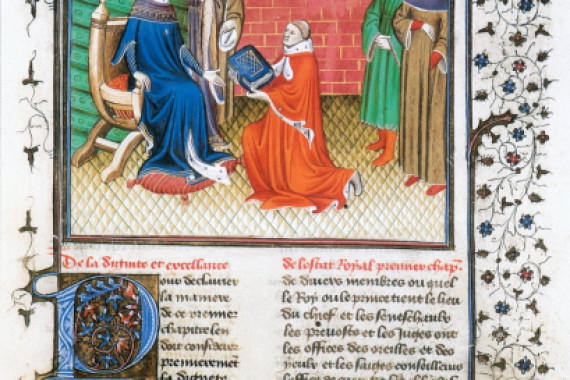 De la dignite et excellance
de lestat Royal premier chap
Pour declairer
la maniere
de ce premier
chapitre len
doit considerer
premierement
la dignite
de divers membres ou quel
le Roy ou le prince tient le lieu
du chief et les seneschaulx
les prevostz et les Juges ont
les offices des oreilles et des
yeulx et les saiges conseilliers